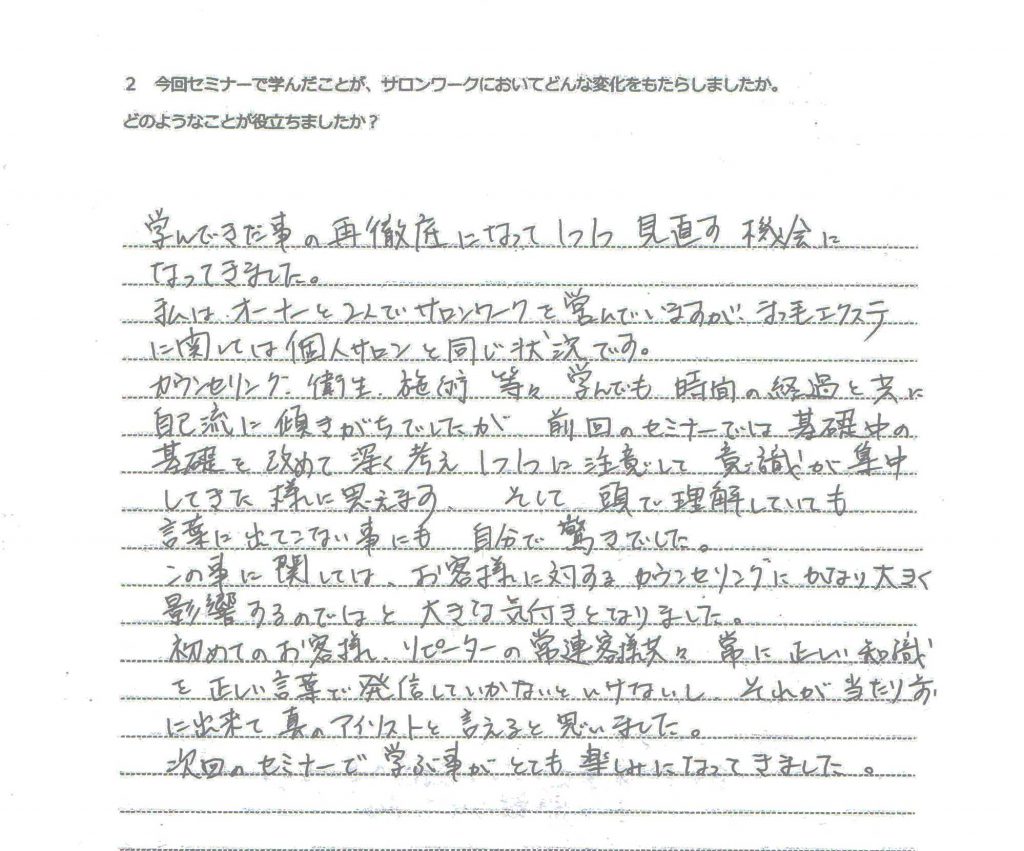 2 今回セミナーで学んだことが、サロンワークにおいてどんな変化をもたらしましたか。
どのようなことが役立ちましたか？
学んできた事の再徹底になって1つ1つ 見直す 機会に
なってきました。
私は オーナーと2人でサロンワークを営んでいますが、まつ毛エクステ
に関しては個人サロンと同じ状況です。
カウンセリング、衛生、施術 等々 学んでも 時間の経過と共に
自己流に傾きがちでしたが 前回のセミナーでは基礎中の
基礎を改めて深く考え 1つ1つに注意して 意識が集中
してきた様に思えます。 そして 頭で理解していても
言葉に出てこない事にも 自分で驚きでした。
この事に関しては、お客様に対するカウンセリングにかなり大きく
影響するのではと 大きな気付きとなりました。
初めてのお客様、リピーターの常連客様共々 常に正しい知識
を正しい言葉で発信していかないといけないし、それが当たり前
に出来て真のアイリストと言えると思いました。
次回のセミナーで学ぶ事がとても楽しみになってきました。